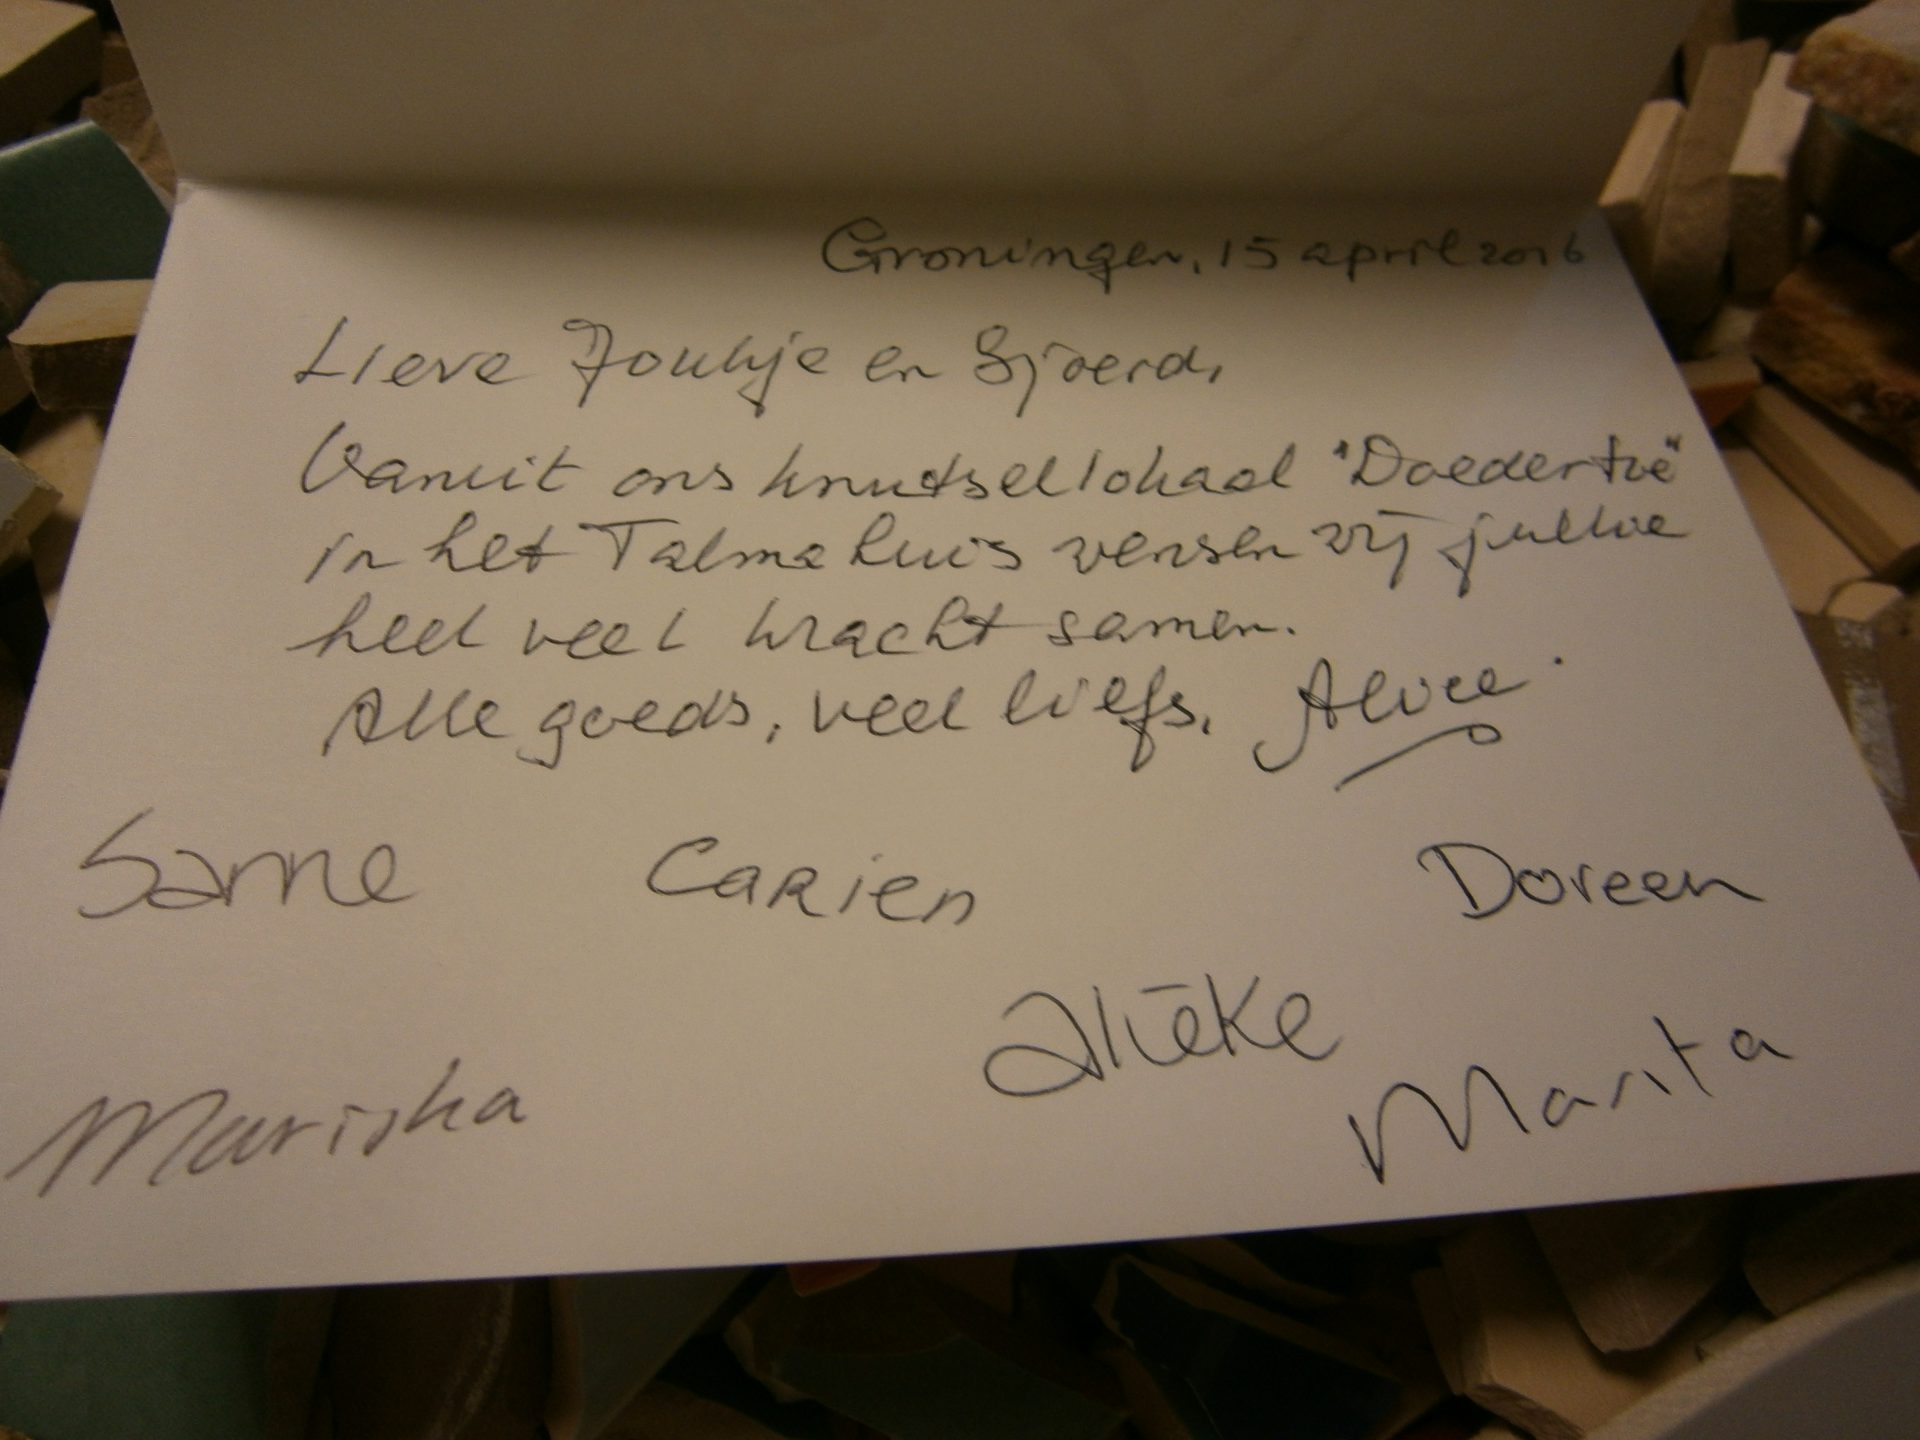 Groningen, 15 april 2016
Lieve Joukje en Sjoerd,
Vanuit ons knutsellokaal "Doedertoe"
in het Talmahuis wensen wij jullie
heel veel kracht samen.
Alle goeds, veel liefs, Alice.
Sanne Carien Doreen
Alieke
Mariska Marita